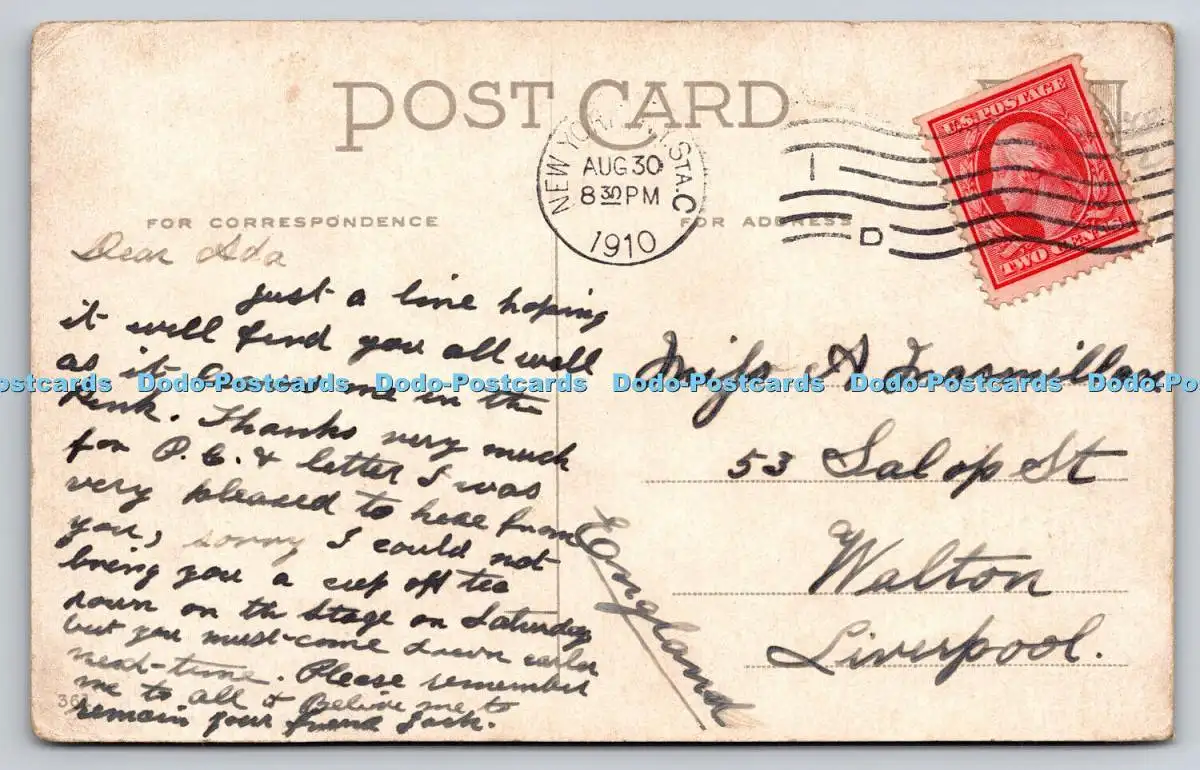 POST CARD
NEW YORK STA.C
AUG 30
8 30 PM
1910
D
U.S. POSTAGE
TWO CENTS
FOR CORRESPONDENCE
FOR ADDRESS
Dear Ada
Just a line hoping
it will find you all well
as it leaves me in the
pink. Thanks very much
for P.C. & letter I was
very pleased to hear from
you, sorry I could not
bring you a cup off tea
down on the stage on Saturday
but you must come down earlier
next time. Please remember
me to all & Believe me to
remain your friend Jack.
Miss A
53 Salop St
Walton
Liverpool.
England
Dodo-Postcards Dodo-Postcards Dodo-Postcards Dodo-Postcards Dodo-Postcards